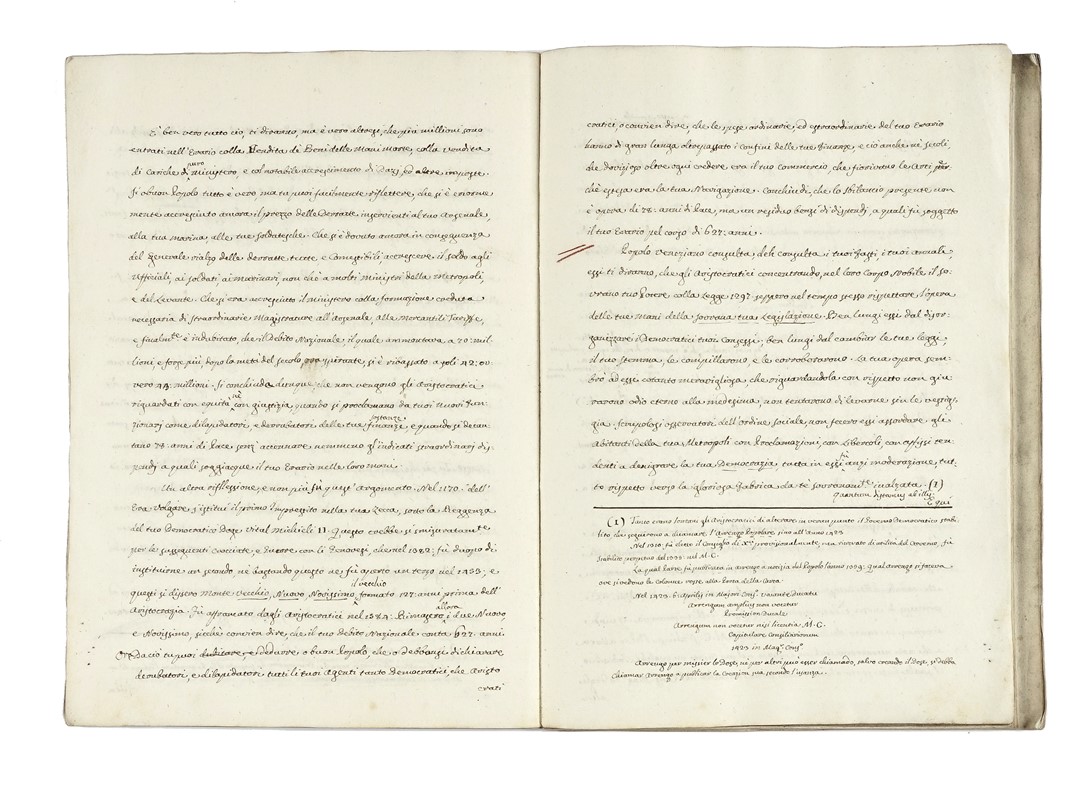 È ben vero tutto ciò, ti diranno, ma è vero altresì, che più millioni sono
entrati nell'Erario colla Vendita di Beni delle Mani morte, colla vendita
di Cariche di nuro ministero, e col notabile accrescimento di Dazj, ed altre imposte.
Sì o buon Popolo tutto è vero ma tu puoi facilmente riflettere, che si è enorme
mente accresciuto ancora il prezzo delle Derrate inservienti al tuo Arsenale,
alla tua marina, alle tue soldatesche. Che si è dovuto ancora in conseguenza
del generale rialzo delle derrate tutte e Comestibili accrescere il soldo agli
Uffiziali, ai soldati, ai marinari, non chè a molti ministri della Metropoli,
e del Levante. Che si era accresciuto il ministero colla formazione creduta
necessaria di straordinarie Magistrature all'Arsenale, alle Mercantili Tariffe,
e finalmte. è indubitato, che il Debito Nazionale, il quale ammontava a 70: mil-
lioni, e forse più dopo la metà del secolo, ora spirante, si è ribassato a soli 42: ov
vero 44: millioni. Si conchiuda dunque che non vengono gli Aristocratici
riguardati con equità nè con giustizia, quando si proclamano da tuoi nuovi Fun-
zionarj come dilapidatori, e derubatori delle tue sostanze finanze, e quando si decan-
tano 78: anni di Pace, senz' accennare nemmeno gl'indicati straordinarj di-
spendj a quali soggiacque il tuo Erario nelle loro mani.
Un altra riflessione, e non più sù quest' argomento. Nel 1170: dell'
Era Volgare s'istituì il primo Imprestito nella tua Zecca, sotto la Reggenza
del tuo Democratico Doge Vital Michieli II. Questo crebbe a misura tante
per le susseguenti Crociate, e Guerre con li Genovesi, che nel 1382: fù d'uopo di
instituirne un secondo, nè bastando questo ne fù aperto un terzo nel 1433; e
questi si dissero Monte Vecchio, Nuovo Novissimo formato 127: anni prima dell'
il vecchio
Aristocrazia. Fù affrancato dagli Aristocratici nel 1584. Rimasero allora i due Nuovo
e Novissimo, sicchè convien dire, che il tuo debito Nazionale conta 627: anni.
Or da ciò tu puoi dubitare, e dedurre o buon Popolo, che o debbansi dichiarare
derubatori, e dilapidatori tutti li tuoi Agenti tanto Democratici, che Aristo
cratì
cratici, o convien dire, che le spese ordinarie, ed estraordinarie del tuo Erario
hanno di gran lunga oltrepassato i confini delle tue Finanze, e ciò anche nè secoli,
che dovizioso oltre ogni credere era il tuo commercio, che fiorivano le Arti per-
chè estesa era la tua Navigazione. Conchiudi, che lo sbilancio presente non
è opera di 78: anni di Pace, ma un residuo bensì di dispendj, a quali fù soggetto
il tuo Erario pel corso di 627: anni.
Popolo Veneziano consulta, deh consulta i tuoi fasti, i tuoi annali,
essi ti diranno, che gli Aristocratici concentrando, nel loro Corpo Nobile il so-
vrano tuo Potere colla Legge 1297. seppero nel tempo stesso rispettare l'opera
delle tue Mani della sovrana tua Legislazione. Ben lungi essi dal disor-
ganizzare i Democratici tuoi Consessi, ben lungi dal cambiar le tue leggi,
il tuo stemma, le compillarono, e le corroborarono. La tua opera sem-
brò ad esse cotanto meravigliosa, che riguardandola con rispetto non giu-
rarono odio eterno alla medesima, non tentarono di levarne fin le vestig-
gia. Scrupolosi osservatori dell'ordine sociale, non fecero essi assordare gli
abitanti della tua Metropoli con Proclamazioni, con Libercoli, con affissi ten-
denti a denigrare la tua Democrazia, tutta in essi fù anzi moderazione, tut-
to rispetto verso la gloriosa Fabrica da tè sovranamte. inalzata. (1)
quantum distamus ab illis
E qui
(1) Tanto erano lontani gli Aristocratici di alterare in verun punto il Governo Democratico stabi-
lito, che seguirono a chiamare, l'Arrengo Popolare sino all'anno 1423
Nel 1310. si elesse il Consiglio di X.ci provisionalmente, ma ritrovato di utilità del Governo, fù
stabilito perpetuo del 1335: nel M. C.
La qual Parte fù publicata in arrengo a notizia del Popolo l'anno 1339: qual Arrengo si faceva
ove si vedono le Colonne rosse alla Porta della Carta.
Nel 1423. 6 Aprilis in Majori Cons.o Vacante Ducatu
Arrengum amplius non vocetur
Promission Ducale
Arrengum non vocetur nisi licentia M. C.
Capitulare Consiliariorum
1423 in Mag.o Cons.o
Arrengo per missier lo Dose, nè per altri può esser chiamado, salvo creando il Dose, si debba
chiamar Arrengo a publicar la Creazion sua secondo l'usanza.